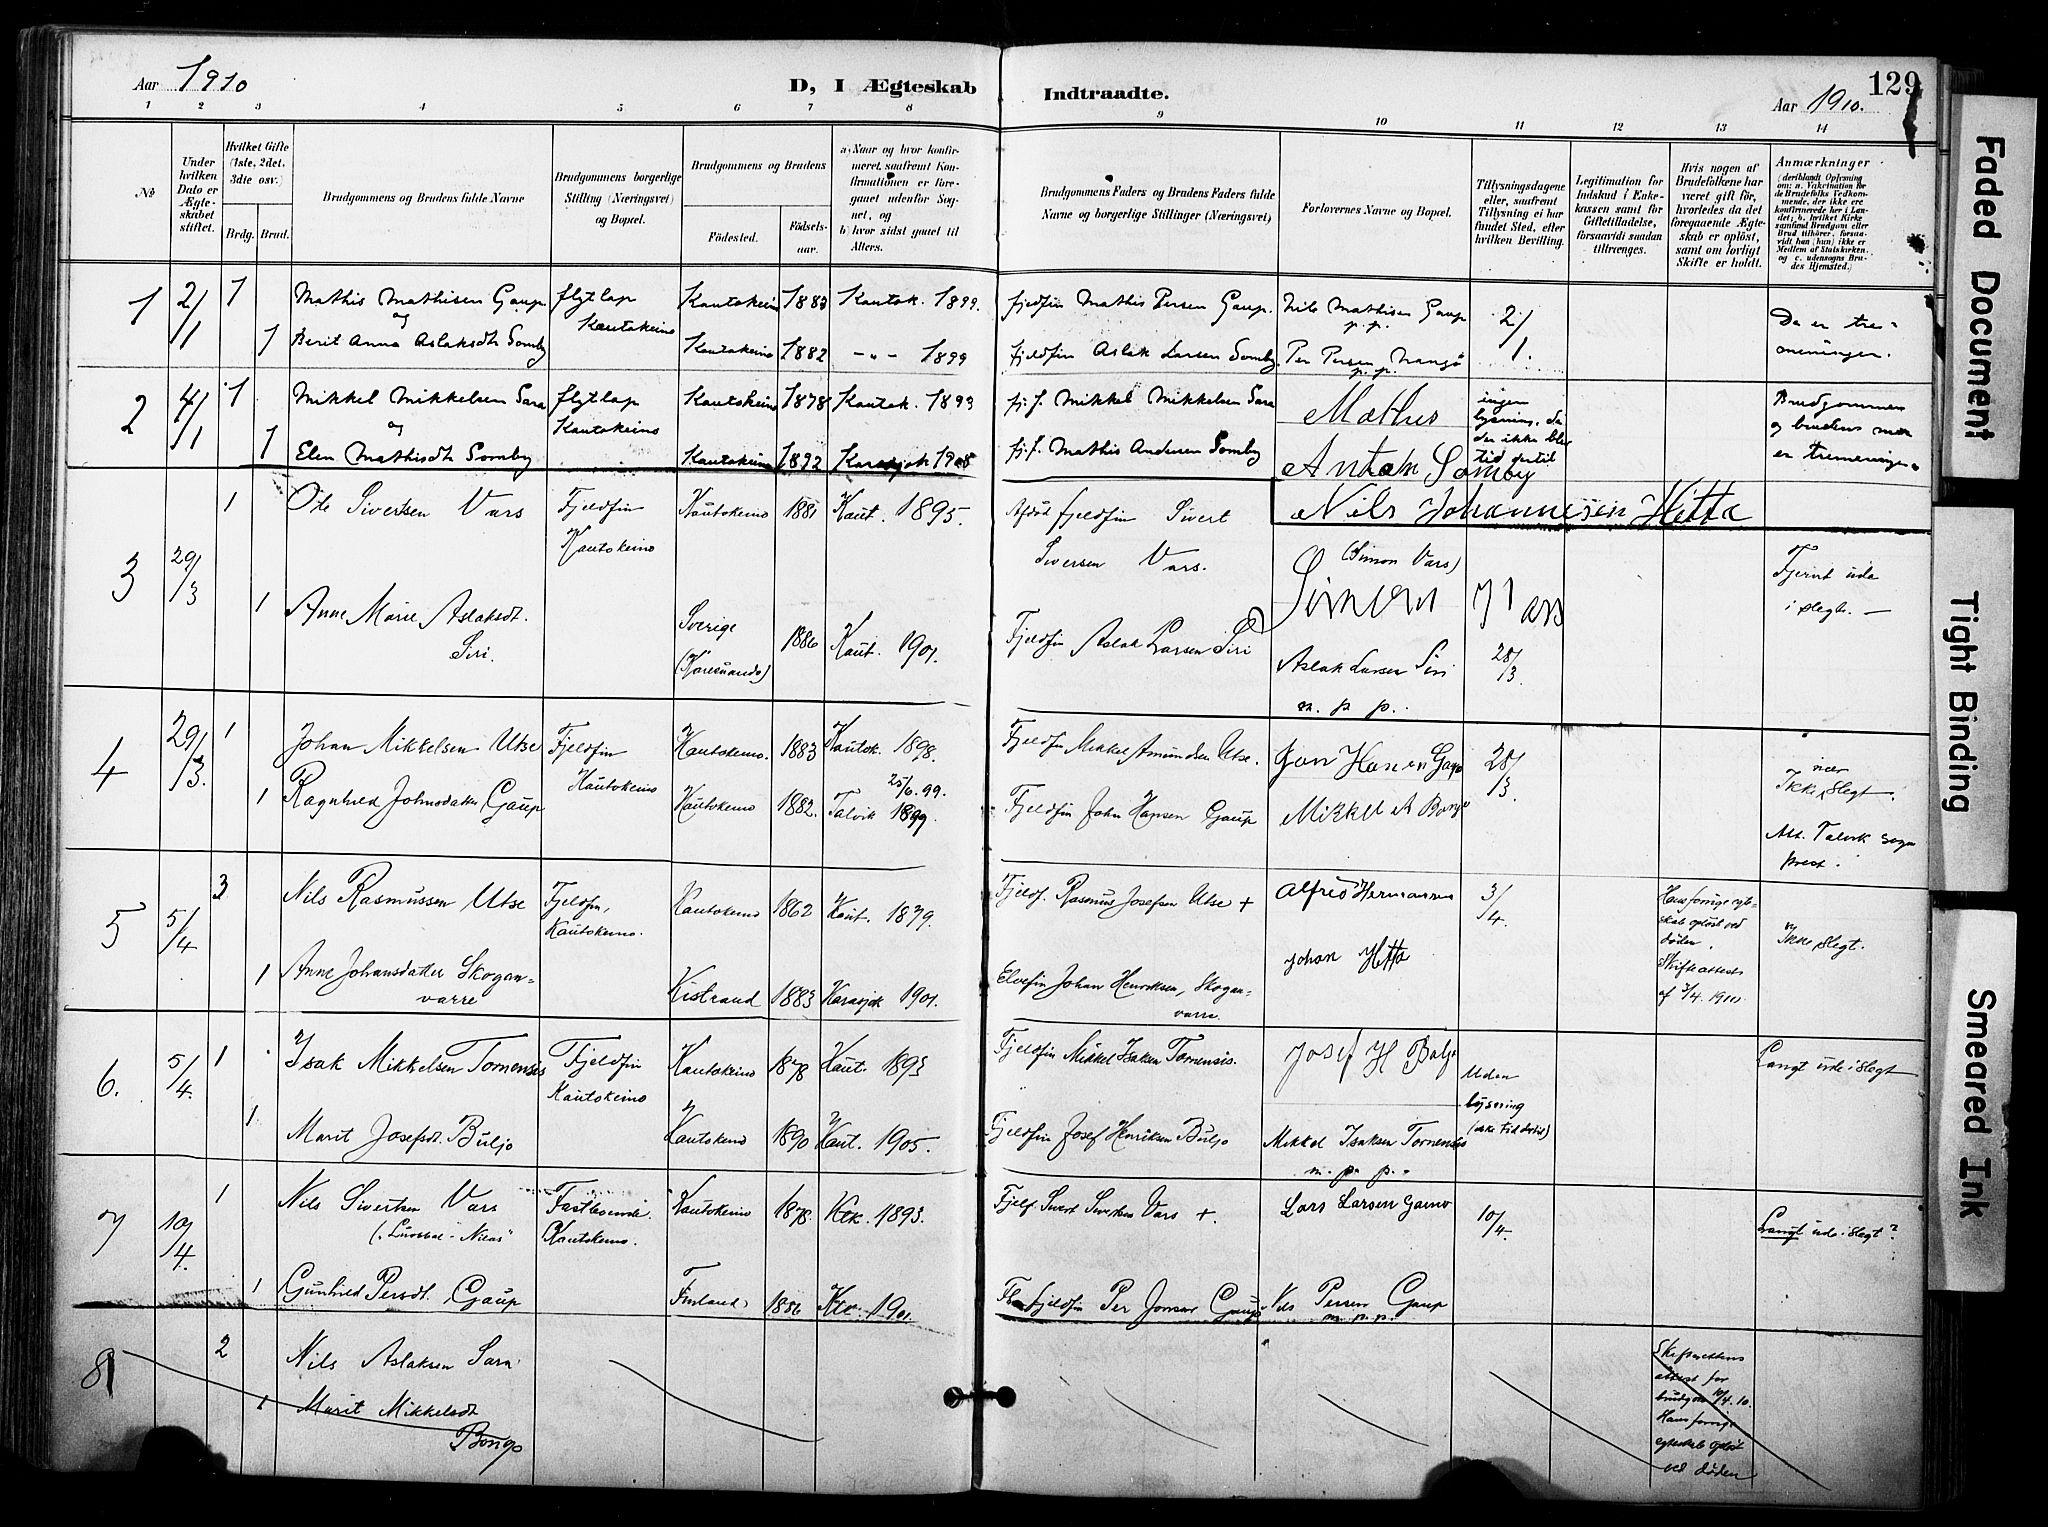 Aar 1910
D, I Ægteskab
Indtraadte.
129
Aar 1910.
1 2 3 4 5 6 7 8 9 10 11 12 13 14
No
Under hvilken Dato er Ægteskabet stiftet.
Hvilket Gifte (1ste, 2det, 3die osv.)
Brdg. Brud.
Brudgommens og Brudens fulde Navne
Brudgommens borgerlige Stilling (Næringsvei) og Bopæl.
Brudgommens og Brudens
Fødested.
Fødsels-aar.
a) Naar og hvor konfirmeret, saafremt Konfirmationen er foregaaet udenfor Sognet, og
b) hvor sidst gaaet til Alters.
Brudgommens Faders og Brudens Faders fulde Navne og borgerlige Stillinger (Næringsvei)
Forlovernes Navne og Bopæl.
Tillysningsdagene eller, saafremt Tillysning ei har fundet Sted, efter hvilken Bevilling.
Legitimation for Indskud i Enkekassen samt for Giftetilladelse, forsaavidt saadan tiltrænges.
Hvis nogen af Brudefolkene har været gift før, hvorledes da det foregaaende Ægteskab er opløst, samt om lovligt Skifte er holdt.
Anmærkninger (deriblandt Oplysning om: a. Vakcination for de Brudefolks Vedkommende, der ikke ere konfirmerede her i Landet; b. hvilket Kirkesamfund Brudgom eller Brud tilhører, forsaavidt han (hun) ikke er Medlem af Statskirken, og c. udensogns Brudes Hjemsted.)
1 2/1 1 Mathis Mathisen Gaup flytlap Kautokeino 1883 Kautok. 1899. fjeldfin Mathis Persen Gaup. Nils Mathisen Gaup 2/1. Da er tre-
og Kautokeino p.p. meninger.
1 Berit Anna Aslaksdt Somby Kautokeino 1882 -"- 1899 fjeldfin Aslak Larsen Somby Per Persen
p.p.
2 4/1 1 Mikkel Mikkelsen Sara flytlap Kautokeino 1878 Kautok. 1893 fj.f. Mikkel Mikkelsen Sara Mathis ingen lysning, da der ikke blev tid dertil Brudgommen
og Kautokeino og brudens
1 Elen Mathisdt Somby Kautokeino 1892 Karasjok 1908 fj.f. Mathis Andersen Somby Anton Somby er tremeninger
3 29/3 1 Ole Sivertsen Vars Fjeldfin Kautokeino 1881 Kaut. 1895. Afdød fjeldfin Sivert Nils Johannesen Hætta
Kautokeino Siversen Vars. (Simon Vars) Fjernt ude
Simon Vars i slegt. —
1 Anne Marie Aslaksdt. Sverige 1886 Kaut. 1901. Fjeldfin Aslak Larsen Siri Aslak Larsen Siri 28/3
Siri. (Karesuando) m. p. p.
4 29/3. 1 Johan Mikkelsen Utse Fjeldfin Kautokeino. 1883 Kautok. 1898. Fjeldfin Mikkel Amundsen Utse. Jon Hansen Gaup 28/3. Ikke nær slegt.
Kautokeino 25/6.99.
1 Ragnhild Johnsdatter Gaup Kautokeino 1882. Talvik 1899. Fjeldfin John Hansen Gaup Mikkel A Att. Talvik sogneprest.
5 5/4 3 Nils Rasmussen Utse Fjeldfin, Kautokeino 1862 Kaut. 1879. Fjeldf. Rasmus Josefsen Utse + Alfred Hermannsen 3/4. Hans forrige egteskab opløst ved døden. Ikke slegt.
Kautokeino. Skifteattest
1 Anne Johansdatter Skogan- Kistrand 1883 Karasjok 1901. Elvefin Johan Henriksen, Skogan- Johan Hætta af 2/4. 1910.
varre varre.
6. 5/4. 1 Isak Mikkelsen Tornensis Fjeldfin Kautokeino 1878 Kaut. 1893 Fjeldfin Mikkel Isaksen Tornensis. Josef H Buljo Uden lysning (ikke tid dertil) Langt ude i slegt
Kautokeino
1. Marit Josefsdt. Buljo Kautokeino 1890 Kaut. 1905. Fjeldfin Josef Henriksen Buljo Mikkel Isaksen Tornensis
m. p. p.
7 10/4. 1 Nils Sivertsen Vars Fastboende. Kautokeino 1878. Ktk. 1893. Fjelf. Sivert Sivertsen Vars +. Lars Larsen Gaino 10/4. Langt ude i slegt?
Kautokeino.
1 Gunhild Persdt. Gaup Finland 1886 Ktk. 1901. fjeldfin Per Jonsen Gaup Nils Persen Gaup
m.p.p.
8 2 Nils Aslaksen Sara Skifterettens attest for brudgom 10/4.10.
1 Marit Mikkelsdt Hans forrige egteskab opløst
Bongo ved døden
Faded Document
Tight Binding
Smeared Ink